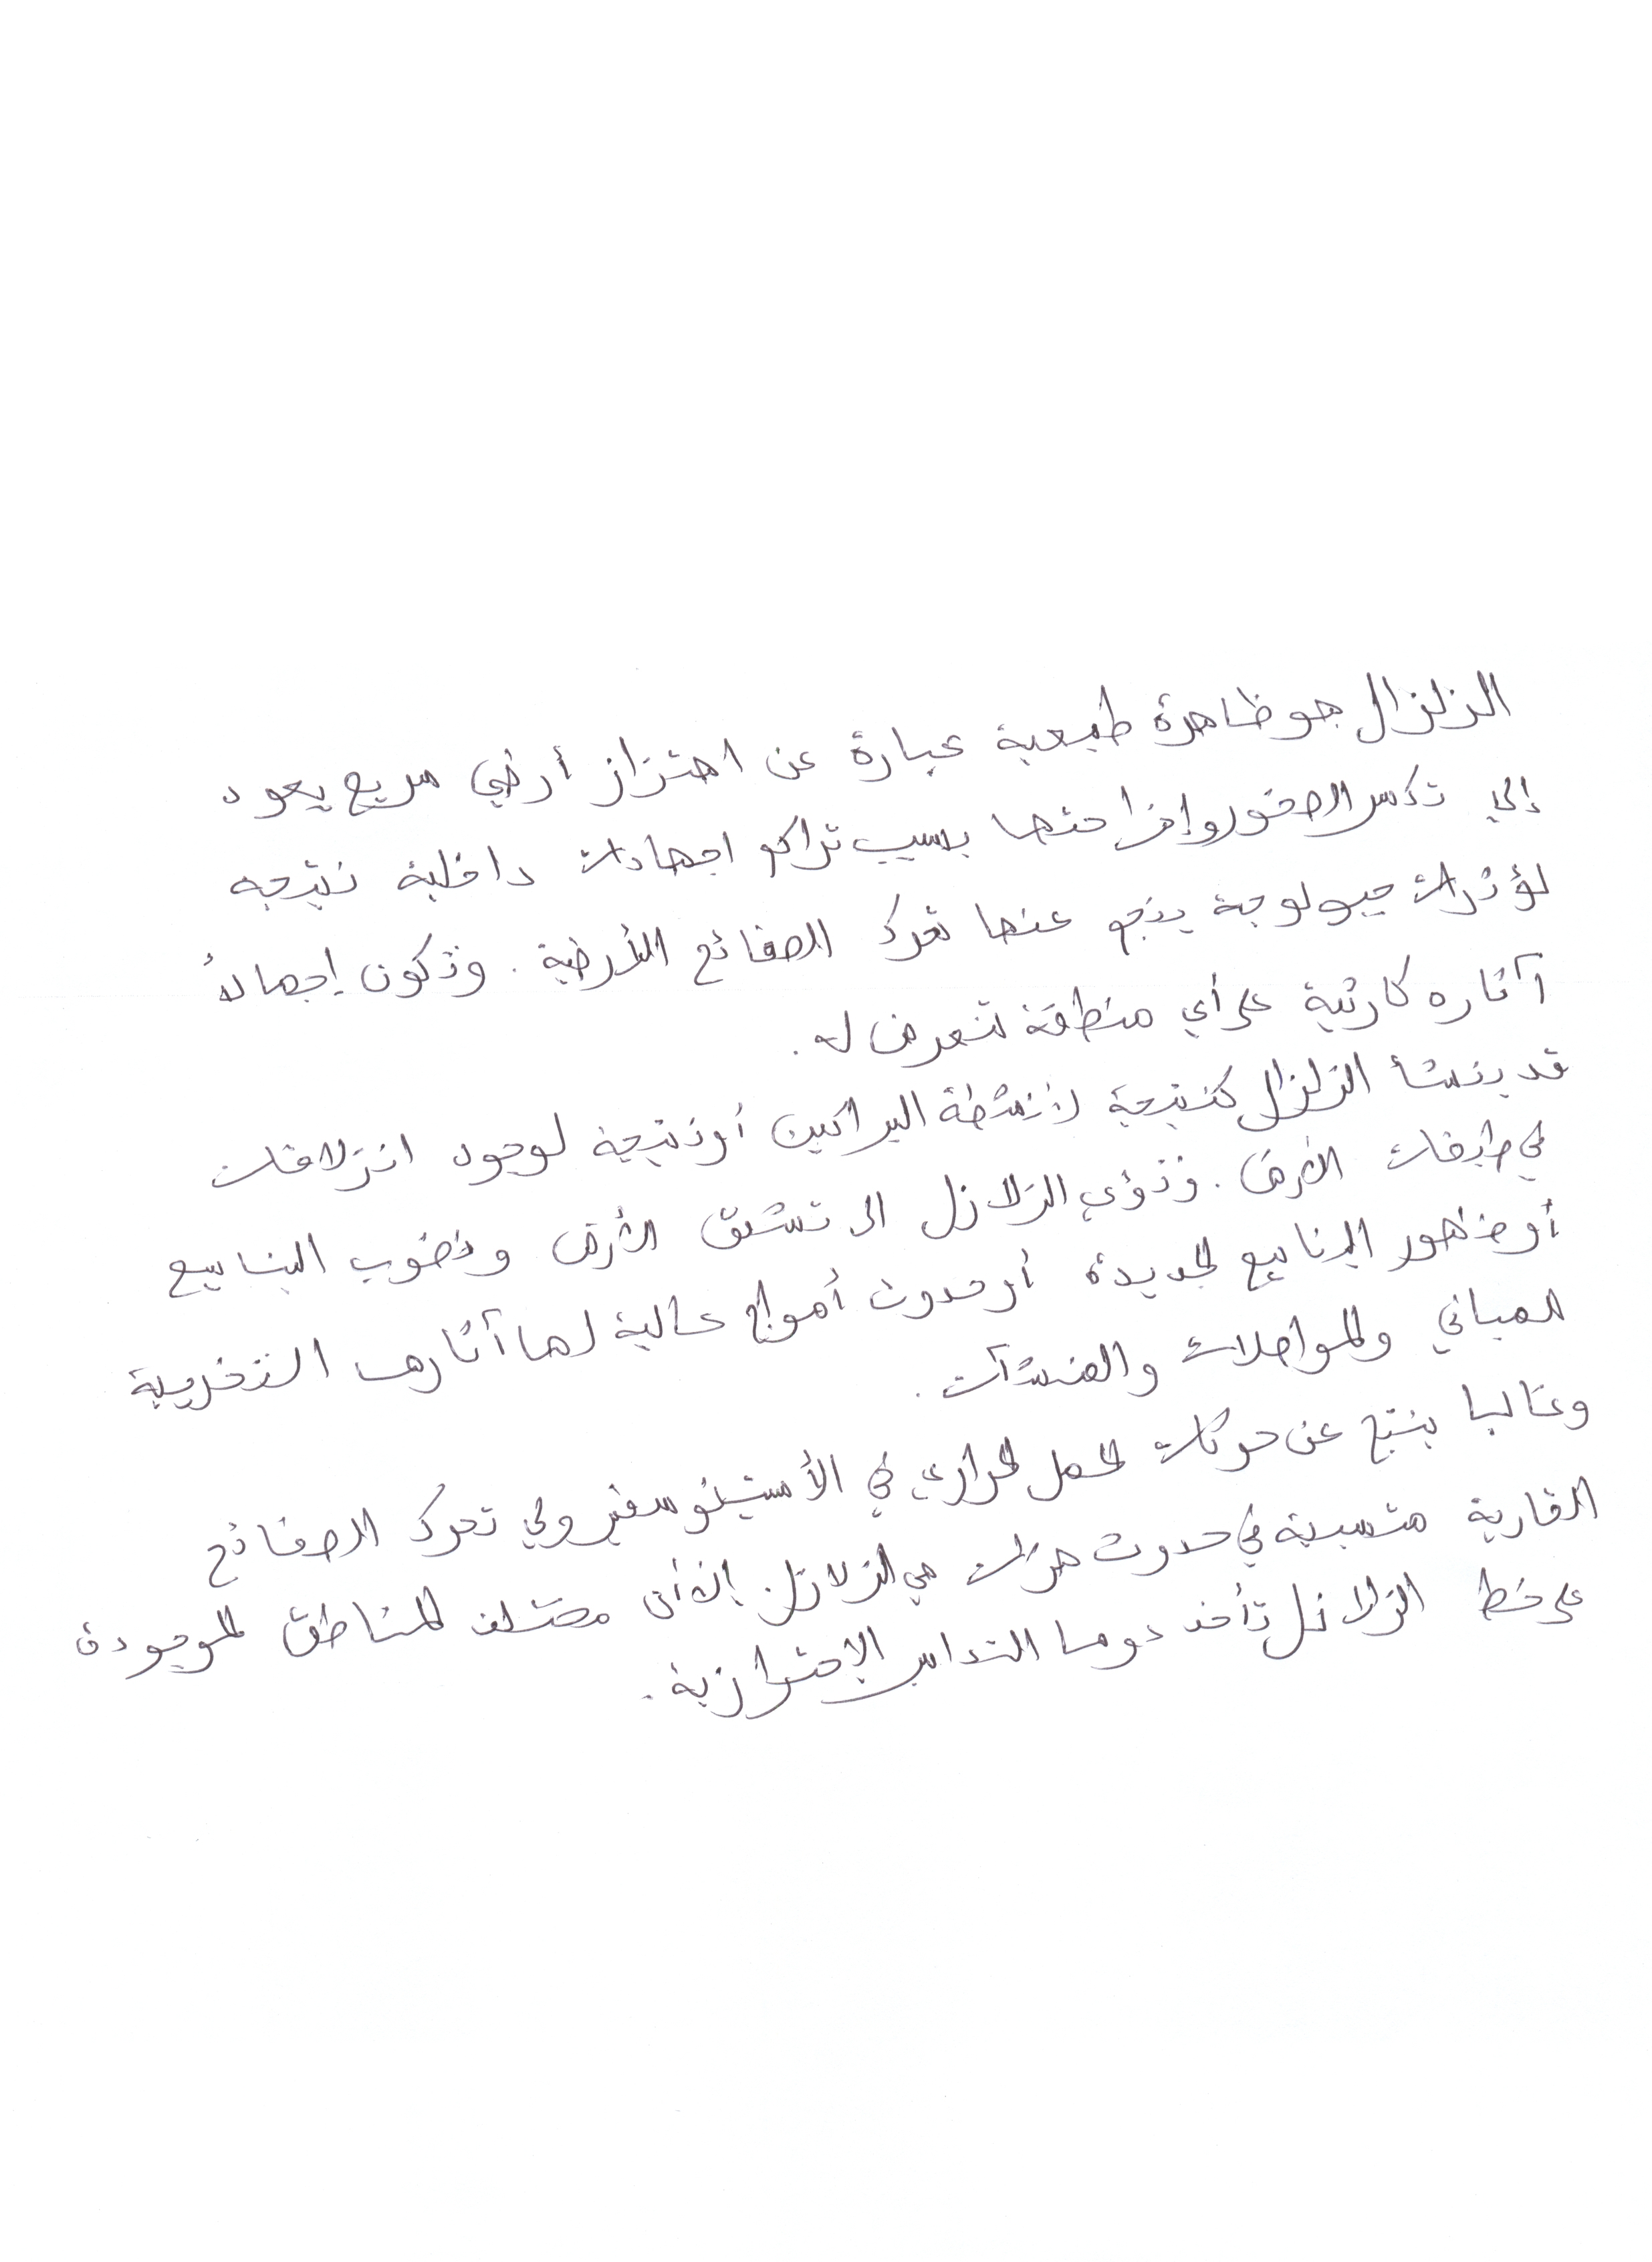 الزلزال هو ظاهرة طبيعية عبارة عن اهتزاز أرضي سريع يعود
إلى تكسر الصخور وإزاحتها بسبب تراكم اجهادات داخلية نتيجه
لمؤثرات جيولوجية ينجم عنها تحرك الصفائح الأرضية. وتكون إجمالاً
آثاره كارثية على أي منطقة تتعرض له.
قد ينشأ الزلزال كنتيجة لأنشطة البراكين أو نتيجة لوجود انزلاقات
في طبقات الأرض. وتؤدي الزلازل الى تشقق الأرض ونضوب الينابيع
أو ظهور الينابيع الجديدة أو حدوث أمواج عالية لها آثارها التخريبية
للمباني والمواصلات والمنشآت.
وغالبا ينتج عن حركات الحمل الحراري في الأستينوسفير والي تحرك الصفائح
القارية متسببة في حدوث هزات هي الزلازل. إلا أن مختلف المناطق الموجودة
على خط الزلازل تأخذ دوما التدابير الإحترازية.